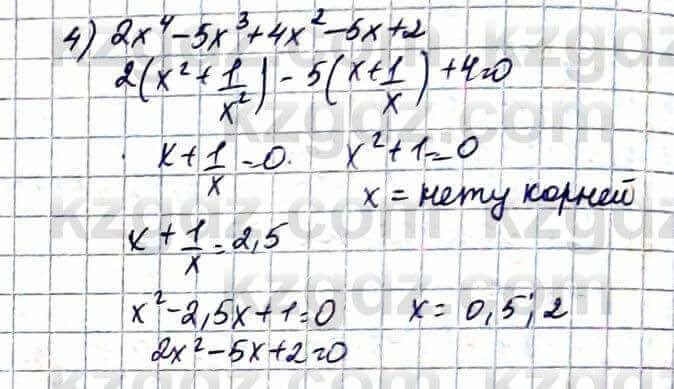 4) 2x⁴-5x³+4x²-5x+2
2(x²+1/x²)-5(x+1/x)+4=0
x+1/x=0. x²+1=0
x= нету корней
x+1/x=2,5
x²-2,5x+1=0 x= 0,5; 2
2x²-5x+2=0